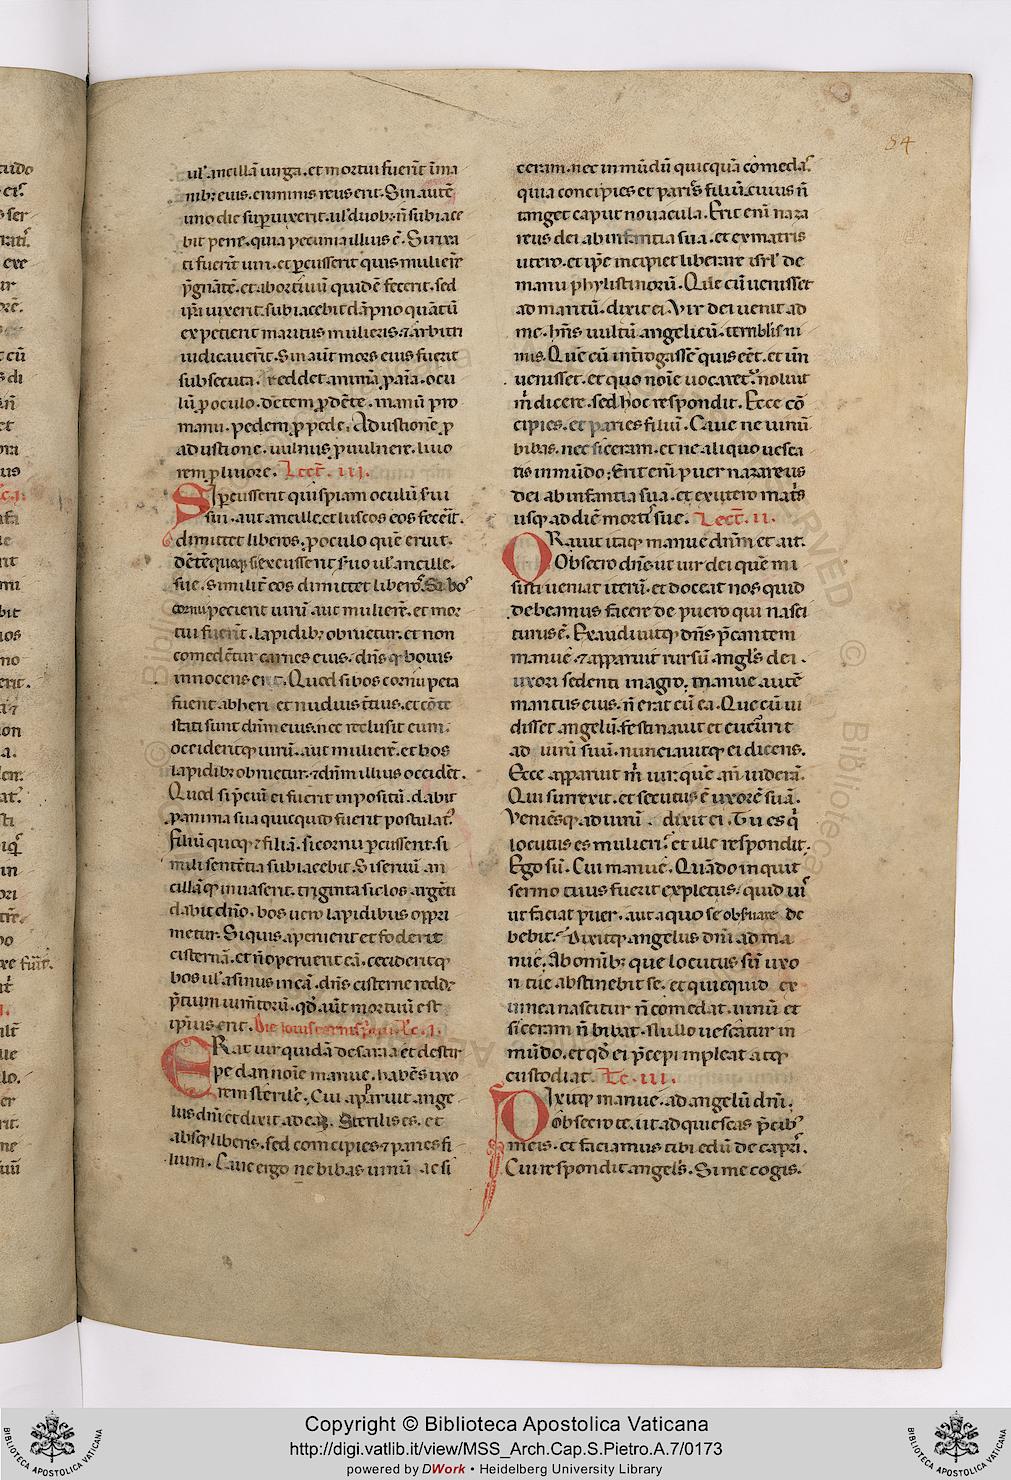 84
ul' ancillā uirga. et mortui fuerīt ī ma
nibꝫ eius. criminis reus erit. Sin autē
uno die suꝑuixerit. ul' duobꝫ. ñ subiace
bit pene. quia pecunia illius ē. Si rixa
ti fuerīt uiri. et ꝑcusserit quis mulierē
p̄gnātē. et abortiuū quidē fecerit. sed
ip̄a uixerit. subiacebit dāpno quātū
expetierit maritus mulieris. ⁊ arbitri
iudicauerīt. Sin aūt mors eius fuerit
subsecuta. reddet animā ꝓ aīa. ocu
lū ꝓ oculo. dētem ꝓ dēte. manū pro
manu. pedem ꝓ pede. Adustionē ꝓ
adustione. uulnus ꝓ uulnere. liuo
rem ꝓ liuore. Lect̄. III.
SI ꝑcusserit quispiam oculū serui
sui. aut ancille. et luscos eos fecerīt.
dimittet liberos. ꝓ oculo quē eruit.
dētē quoqꝫ si excusserit seruo ul' ancille
sue. similit̄ eos dimittet liberos. Si bos
cornu petierit uirū. aut mulierē. et mor
tui fuerīt. lapidibꝫ obruetur. et non
comedētur carnes eius. dn̄s qꝫ bouis
innocens erit. Quod si bos cornu peta
fuerit ab heri et nudius t̄tius. et cōte
stati sunt dn̄m eius. nec reclusit eum.
occideritqꝫ uirū. aut mulierē. et bos
lapidibꝫ obruetur. ⁊ dn̄m illius occidēt.
Quod si p̄ciū ei fuerit inpositū. dabit
ꝓ anima sua quicquid fuerit postulat᷒.
Filiū quoqꝫ ⁊ filiā. si cornu ꝑcusserit. si
mili sentētia subiacebit. Si seruū an
cillāqꝫ inuaserit. triginta siclos argēti
dabit dn̄o. bos uero lapidibus oppri
metur. Si quis aperierit et foderit
cisternā. et ñ operuerit eā. cecideritqꝫ
bos ul' asinus in eā. dn̄s cisterne reddꝫ
p̄tium iumētorū. qd̄ aūt mortuū est
ip̄ius erit.
ERat uir quidā de saraa et de stir
pe dan noīe manue. habēs uxo
rem sterilē. Cui apparuit ange
lus dn̄i et dixit ad eā. Sterilis es. et
absqꝫ liberis. sed concipies ⁊ paries fi
lium. Caue ergo ne bibas uinū ac si
ceram. nec inmūdū quicquā comedas.
quia concipies et paries filiū. cuius ñ
tanget caput nouacula. Erit enī naza
reus dei ab infantia sua. et ex matris
utero. et ip̄e incipiet liberare isrl' de
manu phylistinorū. Que cū uenisset
ad maritū. dixit ei. Vir dei uenit ad
me. hn̄s uultū angelicū. terribilis ni
mis. Quē cū intrōgassē quis eēt. et un̄
uenisset. et quo noīe uocaret᷒. noluit
m̄ dicere. sed hoc respondit. Ecce cō
cipies. et paries filiū. Caue ne uinū
bibas. nec siceram. et ne aliquo uesca
ris inmūdo. Erit enī puer nazareus
dei ab infantia sua. et ex utero matris
usqꝫ ad diē mortis sue. Lect̄. II.
ORauit itaqꝫ manue dn̄m et ait.
Obsecro dn̄e. ut uir dei quē mi
sisti ueniat iterū. et doceat nos quid
debeamus facere de puero qui nasci
turus ē. Exaudiuitqꝫ dn̄s p̄cantem
manue. ⁊ apparuit rursū angls dei.
uxori sedenti in agro. manue autē
maritus eius. ñ erat cū ea. Que cū ui
disset angelū. festinauit et cucurrit
ad uirū suū. nunciauitqꝫ ei dicens.
Ecce apparuit m̄ uir. quē an̄ uiderā.
Qui surrexit. et secutus ē uxorē suā.
Veniēsqꝫ ad uirū. dixit ei. Tu es qui
locutus es mulieri? et ille respondit.
Ego sū. Cui manue. Quādo inquit
sermo tuus fuerit expletus. quid uis
ut faciat puer. aut a quo se obseruare de
bebit? Dixitqꝫ angelus dn̄i ad ma
nue. Ab omībꝫ que locutus sū uxo
ri tue abstinebit se. et quicquid ex
uinea nascitur ñ comedat. uinū et
siceram ñ bibat. Nullo uescatur in
mūdo. et qd̄ ei p̄cepi inpleat atqꝫ
custodiat. Lc̄. III.
DIxitqꝫ manue. ad angelū dn̄i.
Obsecro te. ut adquiescas p̄cibꝫ
meis. et faciamus tibi edū de capris.
Cui respondit angels. Si me cogis.
Copyright © Biblioteca Apostolica Vaticana
http://digi.vatlib.it/view/MSS_Arch.Cap.S.Pietro.A.7/0173
powered by DWork • Heidelberg University Library
BIBLIOTECA APOSTOLICA VATICANA
BIBLIOTECA APOSTOLICA VATICANA